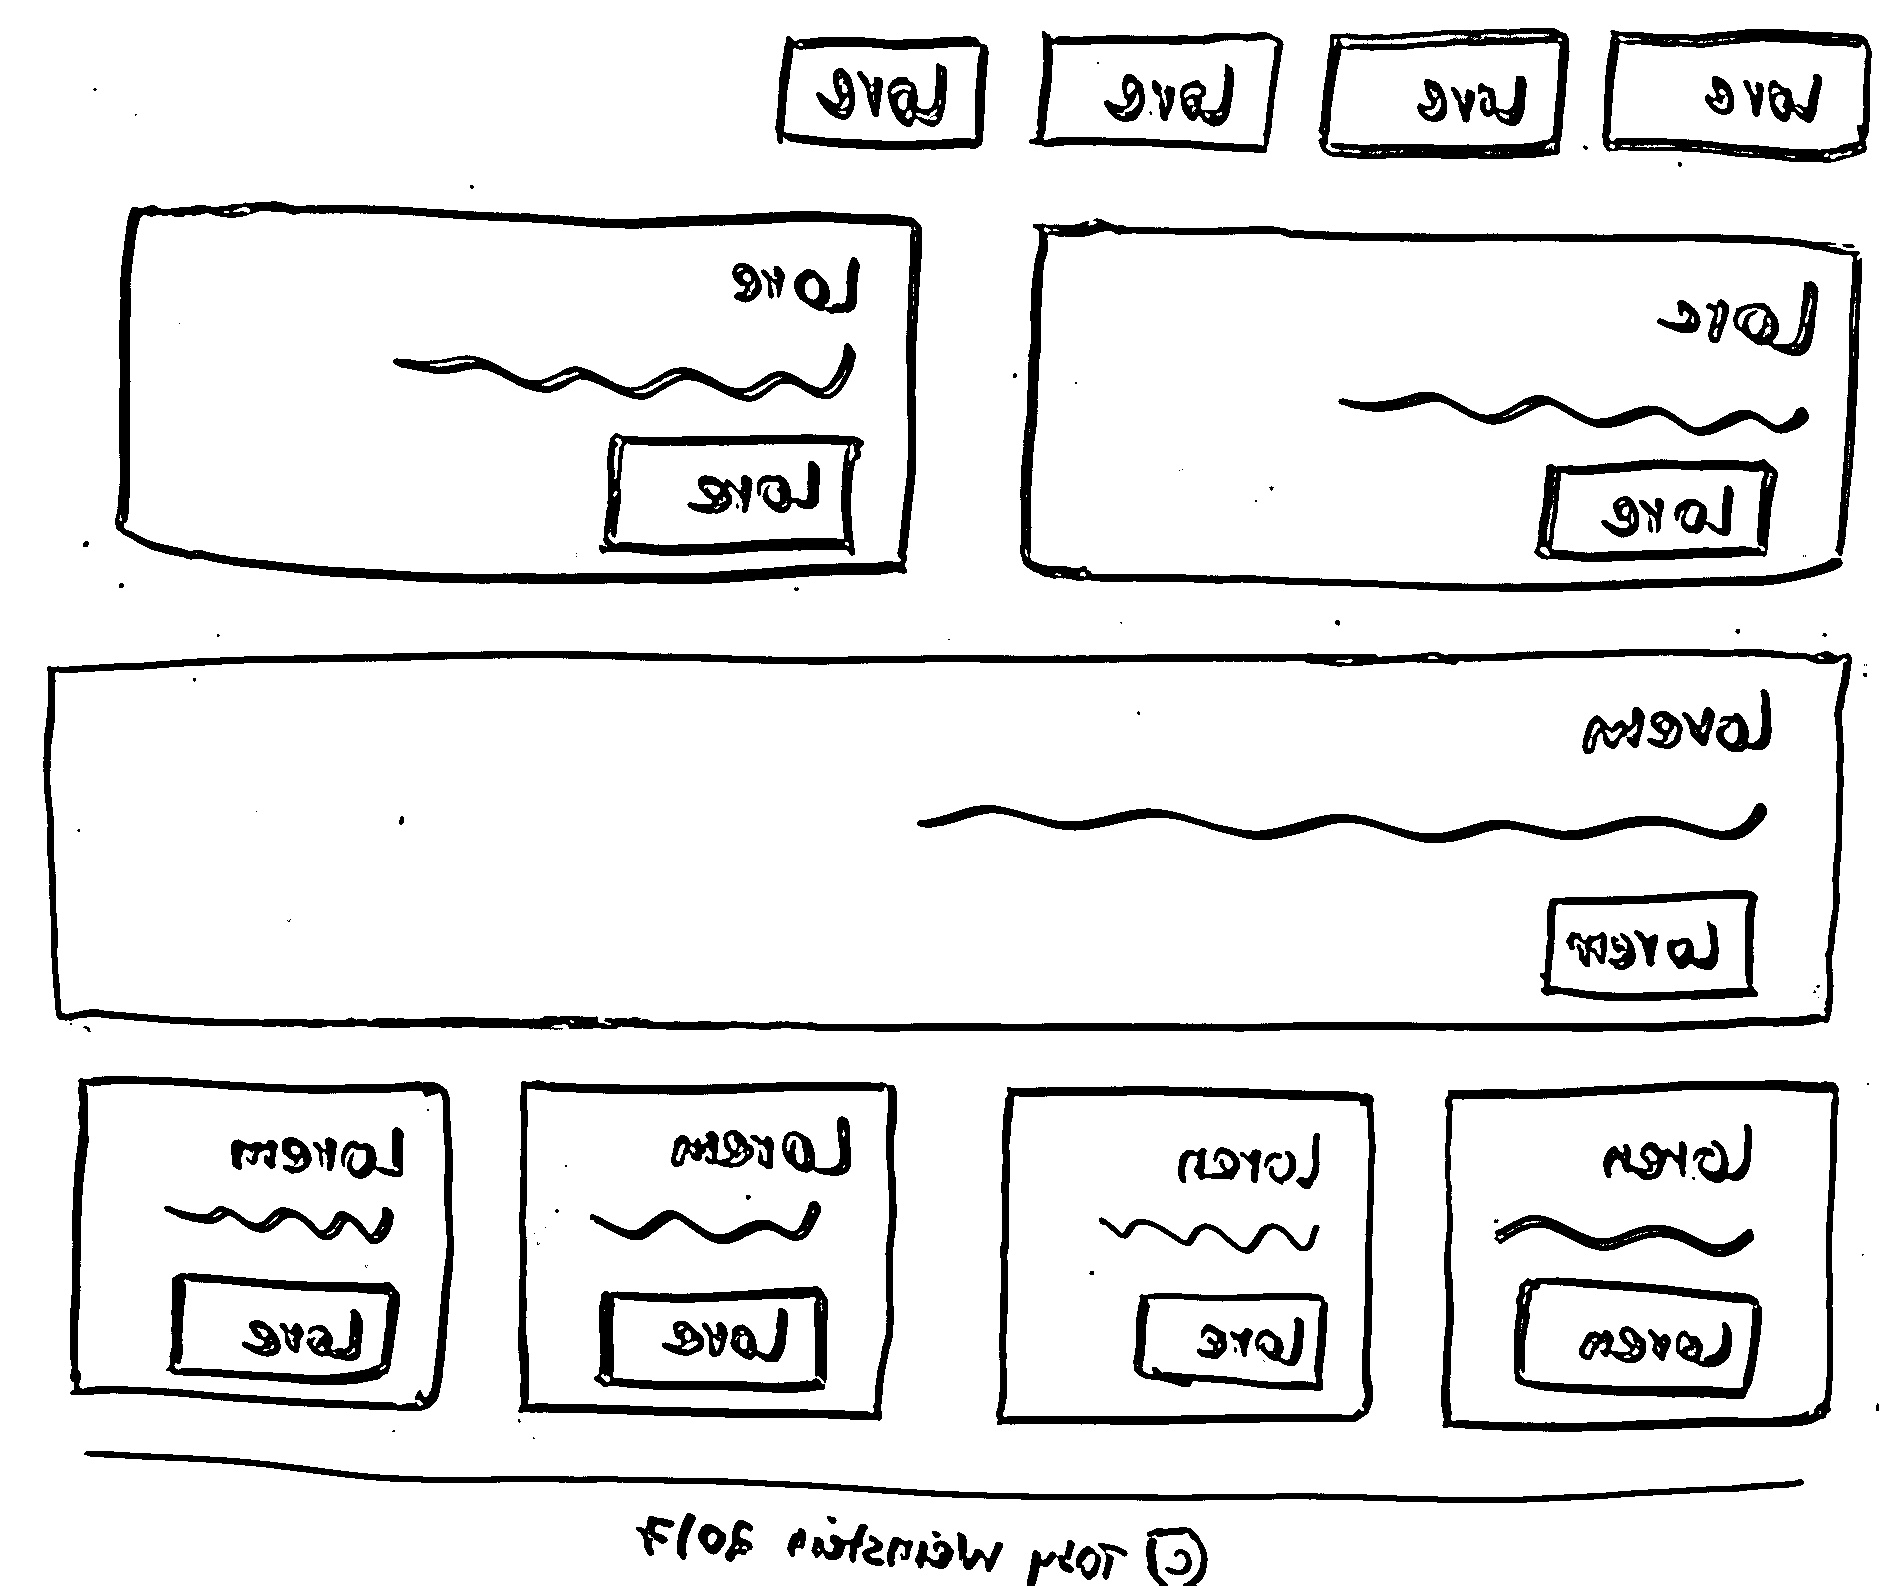 Lore Lore Lore Lore
Lore
Lore
Lore
Lore
Lorem
Lorem
Loren
Loren
Loren
Lore
Lorem
Lore
Lorem
Lore
© Tory Weinstein 2017